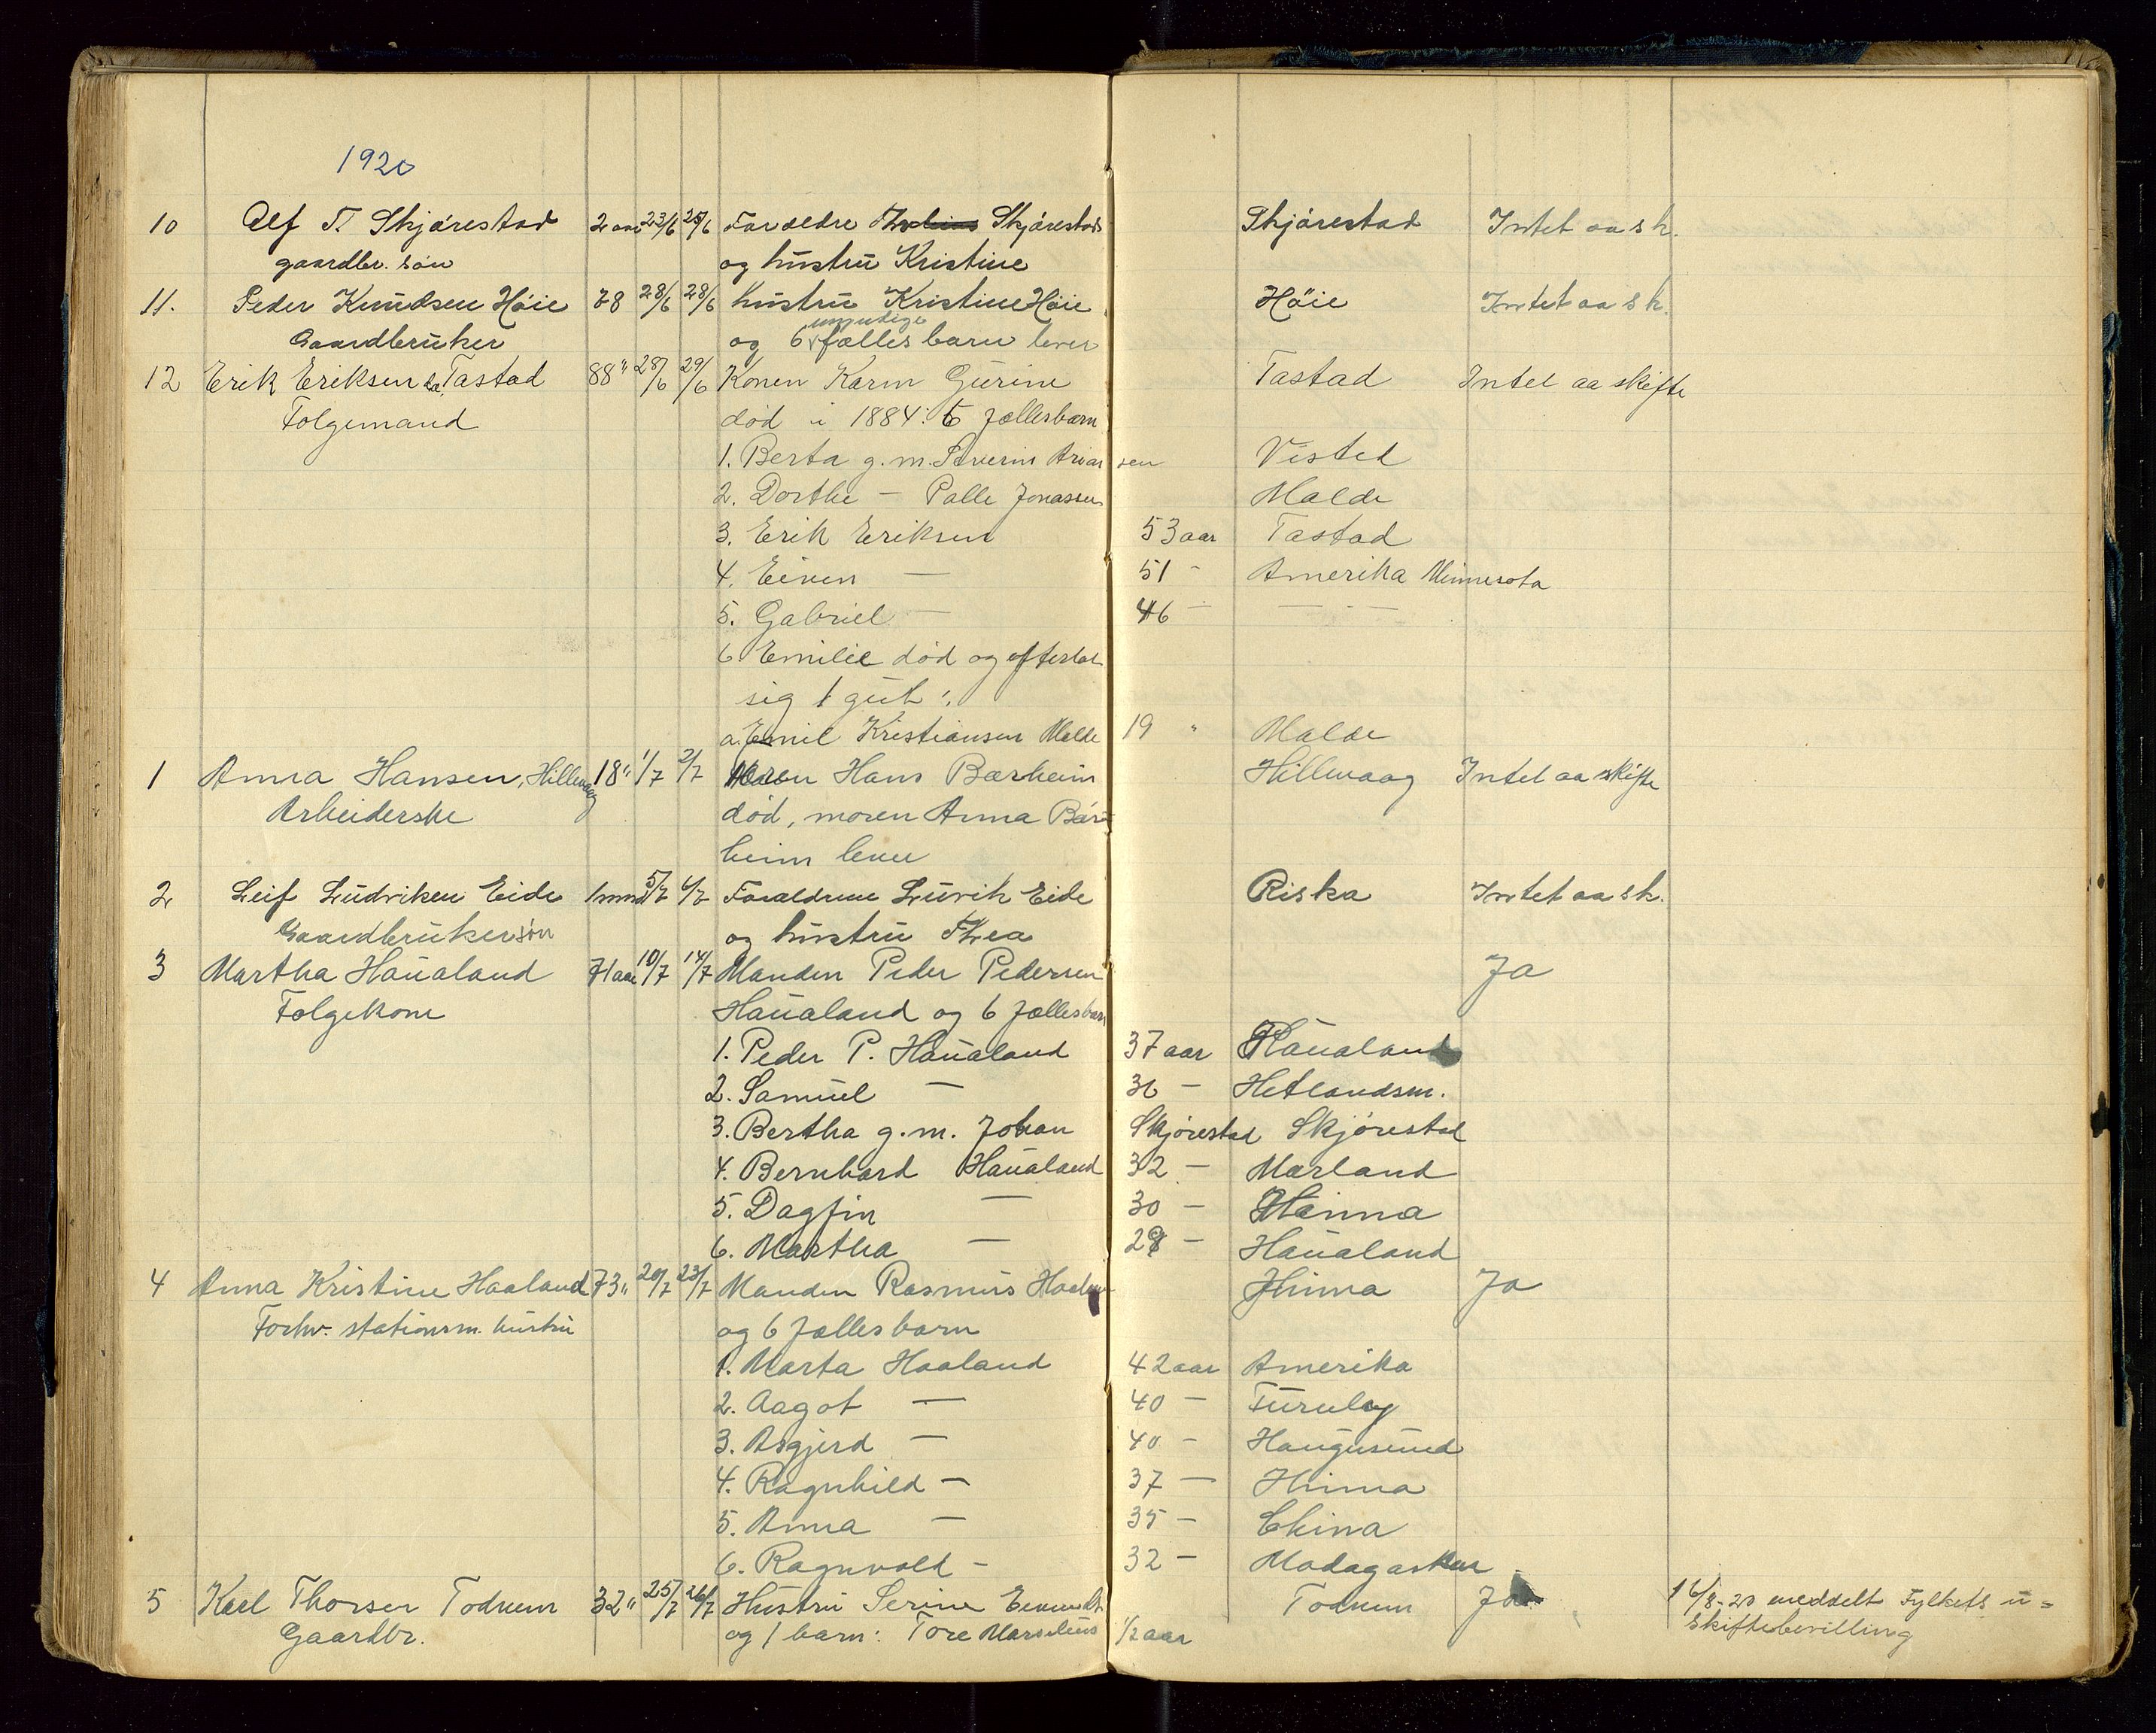 1920
10 Alf T. Skjörestad 2 aar 23/6 25/6 Foreldre Skjörestad Skjörestad Intet aa sk.
gaardbr. sön og hustru Kristine
11. Peder Knudsen Höie 78 28/6 28/6 hustru Kristine Höie Höie Intet aa sk.
umyndige
Gaardbruker og 6 fælles barn lever
12 Erik Eriksen Tastad 88" 28/6 29/6 Konen Karen Gurine Tastad Intet aa skifte
Folgemand död i 1884: 6 fællesbarn
1. Berta g.m. Severin Ariansen Visted
2. Dorthe — Palle Jonassen Malde
3. Erik Eriksen 53 aar Tastad
4. Eiven — 51 - Amerika Minnesota
5. Gabriel — 46 — — —
6 Emilie död og efterlot
sig 1 gut:
a. Emil Kristiansen Malde 19 " Malde
1 Anna Hansen, Hillevaag 18" 1/7 2/7 Hans Bærheim Hillevaag Intet aa skifte
Arbeiderske död, moren Anna Bær-
heim lever
2 Leif Ludviksen Eide 1 mnd 5/7 6/7 Forældrene Luvik Eide Riska Intet aa sk.
Gaardbrukersön og hustru Thea
3 Martha Haualand 71 aar 10/7 14/7 Manden Peder Pedersen Ja
Folgekone Haualand og 6 fællesbarn
1. Peder P. Haualand 37 aar Haualand
2. Samuel — 36 — Hetlandsm.
3. Bertha g.m. Johan Skjörestad Skjörestad
4. Bernhard Haualand 32 — Marland
5. Dagfin — 30 — Hinna
6. Martha — 28 — Haualand
4 Anna Kristine Haaland 73" 20/7 23/7 Manden Rasmus Haaland Hinna Ja
Forhv. stationsm. hustru og 6 fællesbarn
1. Marta Haaland 42 aar Amerika
2. Aagot — 40 — Furuly
3. Asgjerd — 40 - Haugesund
4. Ragnhild — 37 — Hinna
5. Anna — 35 — China
6. Ragnvald - 32 — Madagaskar
5 Karl Thorsen Todnem 32" 25/7 26/7 Hustru Serine Todnem Ja 16/8-20 meddelt Fylkets u=
Gaardbr. og 1 barn: Tore Marselius 1/2 aar skiftebevilling